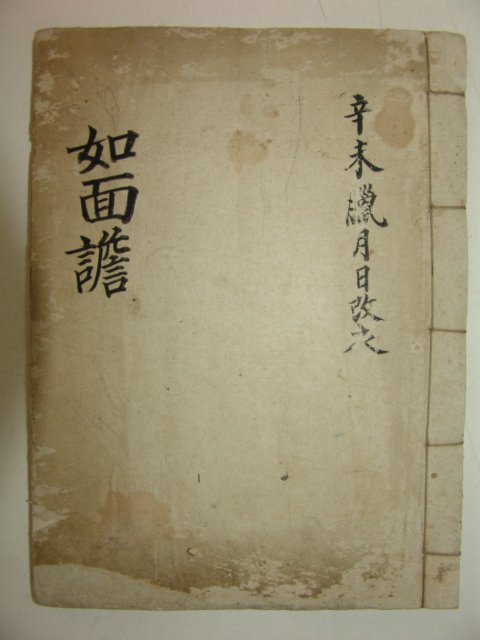 辛未臘月日改衣
如面譫